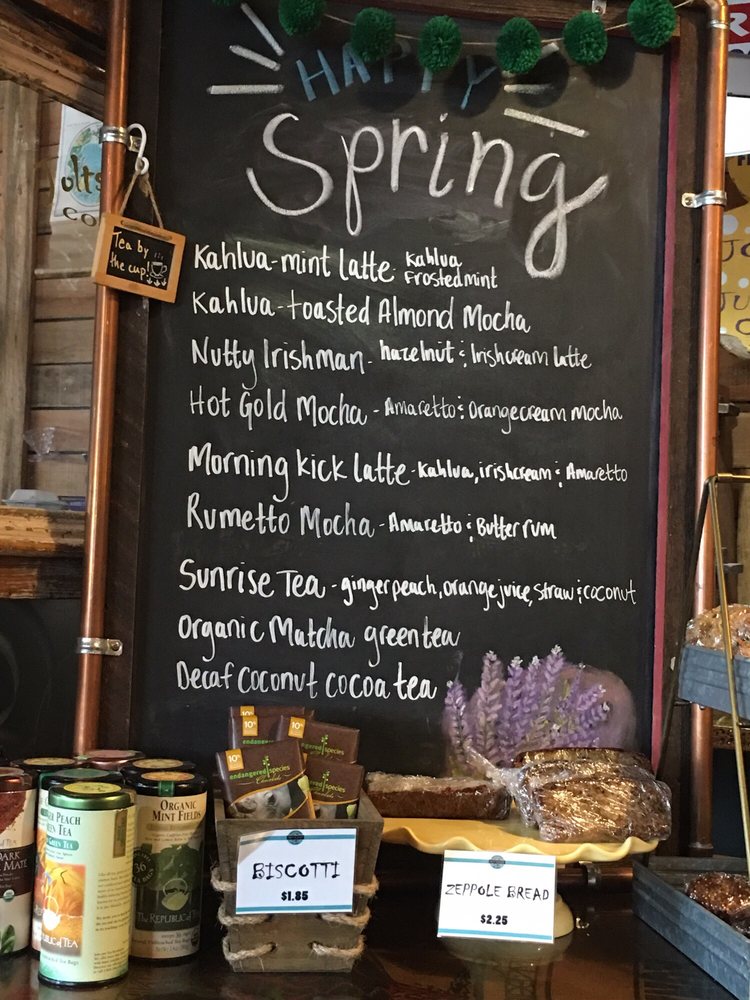 HAPPY
Spring
Tea by
the cup!
Kahlua-mint latte Kahlua
Frostedmint
Kahlua-toasted Almond Mocha
Nutty Irishman- hazelnut & Irishcream latte
Hot Gold Mocha - Amaretto & Orangecream mocha
Morning kick latte - Kahlua, irishcream & Amaretto
Rumetto Mocha - Amaretto & Butter rum
Sunrise Tea - ginger peach, orange juice, straw & coconut
Organic Matcha green tea
Decaf coconut cocoa tea
10%
10%
10%
endangered species
Chocolate
endangered species
BISCOTTI
$1.85
ZEPPOLE BREAD
$2.25
DARK
MATE
PEACH
TEA
ORGANIC
MINT FIELDS
36
THE REPUBLIC of TEA